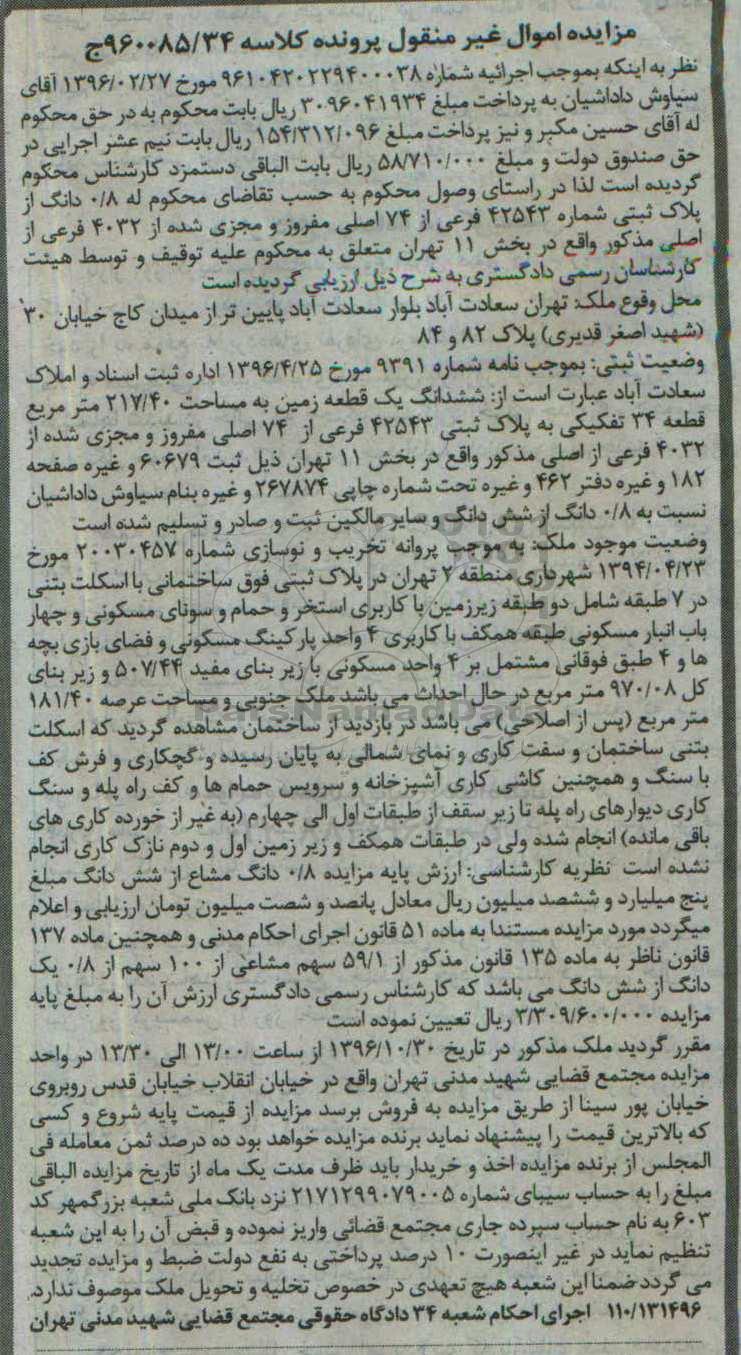 مزایده اموال غیر منقول پرونده کلاسه ۹۶۰۰۸۵/۳۴ج
نظر به اینکه بموجب اجرائیه شماره ۹۶۱۰۴۲۰۲۲۹۴۰۰۰۳۸ مورخ ۱۳۹۶/۰۲/۲۷ آقای
سیاوش داداشیان به پرداخت مبلغ ۳۰۹۶۰۴۱۹۳۴ ریال بابت محکوم به در حق محکوم
له آقای حسین مکبر و نیز پرداخت مبلغ ۱۵۴/۳۱۲/۰۹۶ ریال بابت نیم عشر اجرایی در
حق صندوق دولت و مبلغ ۵۸/۷۱۰/۰۰۰ ریال بابت الباقی دستمزد کارشناس محکوم
گردیده است لذا در راستای وصول محکوم به حسب تقاضای محکوم له ۰/۸ دانگ از
پلاک ثبتی شماره ۴۲۵۴۳ فرعی از ۷۴ اصلی مفروز و مجزی شده از ۴۰۳۲ فرعی از
اصلی مذکور واقع در بخش ۱۱ تهران متعلق به محکوم علیه توقیف و توسط هیئت
کارشناسان رسمی دادگستری به شرح ذیل ارزیابی گردیده است
محل وقوع ملک: تهران سعادت آباد بلوار سعادت آباد پایین تر از میدان کاج خیابان ۳۰
(شهید اصغر قدیری) پلاک ۸۲ و ۸۴
وضعیت ثبتی: بموجب نامه شماره ۹۳۹۱ مورخ ۱۳۹۶/۴/۲۵ اداره ثبت اسناد و املاک
سعادت آباد عبارت است از: ششدانگ یک قطعه زمین به مساحت ۲۱۷/۴۰ متر مربع
قطعه ۳۴ تفکیکی به پلاک ثبتی ۴۲۵۴۳ فرعی از ۷۴ اصلی مفروز و مجزی شده از
۴۰۳۲ فرعی از اصلی مذکور واقع در بخش ۱۱ تهران ذیل ثبت ۶۰۶۷۹ و غیره صفحه
۱۸۲ و غیره دفتر ۴۶۲ و غیره تحت شماره چاپی ۲۶۷۸۷۴ و غیره بنام سیاوش داداشیان
نسبت به ۰/۸ دانگ از شش دانگ و سایر مالکین ثبت و صادر و تسلیم شده است
وضعیت موجود ملک: به موجب پروانه تخریب و نوسازی شماره ۲۰۰۳۰۴۵۷ مورخ
۱۳۹۴/۰۴/۲۳ شهرداری منطقه ۲ تهران در پلاک ثبتی فوق ساختمانی با اسکلت بتنی
در ۷ طبقه شامل دو طبقه زیرزمین با کاربری استخر و حمام و سونای مسکونی و چهار
باب انبار مسکونی طبقه همکف با کاربری ۴ واحد پارکینگ مسکونی و فضای بازی بچه
ها و ۴ طبق فوقانی مشتمل بر ۴ واحد مسکونی با زیر بنای مفید ۵۰۷/۴۴ و زیر بنای
کل ۹۷۰/۰۸ متر مربع در حال احداث می باشد ملک جنوبی و مساحت عرصه ۱۸۱/۴۰
متر مربع (پس از اصلاحی) می باشد در بازدید از ساختمان مشاهده گردید که اسکلت
بتنی ساختمان و سفت کاری و نمای شمالی به پایان رسیده و گچکاری و فرش کف
با سنگ و همچنین کاشی کاری آشپزخانه و سرویس حمام ها و کف راه پله و سنگ
کاری دیوارهای راه پله تا زیر سقف از طبقات اول الی چهارم (به غیر از خورده کاری های
باقی مانده) انجام شده ولی در طبقات همکف و زیر زمین اول و دوم نازک کاری انجام
نشده است نظریه کارشناسی: ارزش پایه مزایده ۰/۸ دانگ مشاع از شش دانگ مبلغ
پنج میلیارد و ششصد میلیون ریال معادل پانصد و شصت میلیون تومان ارزیابی و اعلام
میگردد مورد مزایده مستندا به ماده ۵۱ قانون اجرای احکام مدنی و همچنین ماده ۱۳۷
قانون ناظر به ماده ۱۳۵ قانون مذکور از ۵۹/۱ سهم مشاعی از ۱۰۰ سهم از ۰/۸ یک
دانگ از شش دانگ می باشد که کارشناس رسمی دادگستری ارزش آن را به مبلغ پایه
مزایده ۳/۳۰۹/۶۰۰/۰۰۰ ریال تعیین نموده است
مقرر گردید ملک مذکور در تاریخ ۱۳۹۶/۱۰/۳۰ از ساعت ۱۳/۰۰ الی ۱۳/۳۰ در واحد
مزایده مجتمع قضایی شهید مدنی تهران واقع در خیابان انقلاب خیابان قدس روبروی
خیابان پور سینا از طریق مزایده به فروش برسد مزایده از قیمت پایه شروع و کسی
که بالاترین قیمت را پیشنهاد نماید برنده مزایده خواهد بود ده درصد ثمن معامله فی
المجلس از برنده مزایده اخذ و خریدار باید ظرف مدت یک ماه از تاریخ مزایده الباقی
مبلغ را به حساب سیبای شماره ۲۱۷۱۲۹۹۰۷۹۰۰۵ نزد بانک ملی شعبه بزرگمهر کد
۶۰۳ به نام حساب سپرده جاری مجتمع قضائی واریز نموده و قبض آن را به این شعبه
تنظیم نماید در غیر اینصورت ۱۰ درصد پرداختی به نفع دولت ضبط و مزایده تجدید
می گردد ضمنا این شعبه هیچ تعهدی در خصوص تخلیه و تحویل ملک موصوف ندارد.
۱۱۰/۱۳۱۴۹۶ اجرای احکام شعبه ۳۴ دادگاه حقوقی مجتمع قضایی شهید مدنی تهران